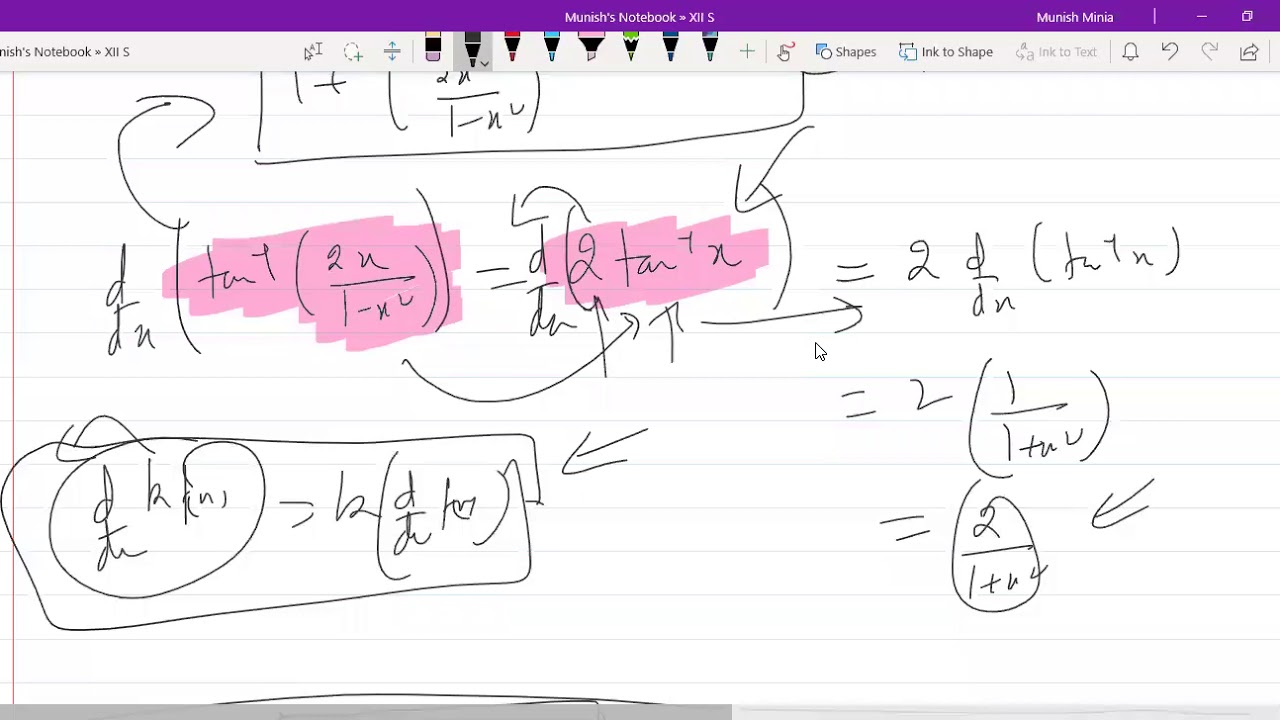 Munish's Notebook » XII S
Munish Minia
nish's Notebook » XII S
Shapes
Ink to Shape
Ink to Text
1 + (2x/(1-x²))
d/dx (tan⁻¹ (2x/(1-x²))) = d/dx (2 tan⁻¹ x) = 2 d/dx (tan⁻¹ x)
= 2 (1/(1+x²))
d/dx k f(x) = k (d/dx f(x))
= 2/(1+x²)